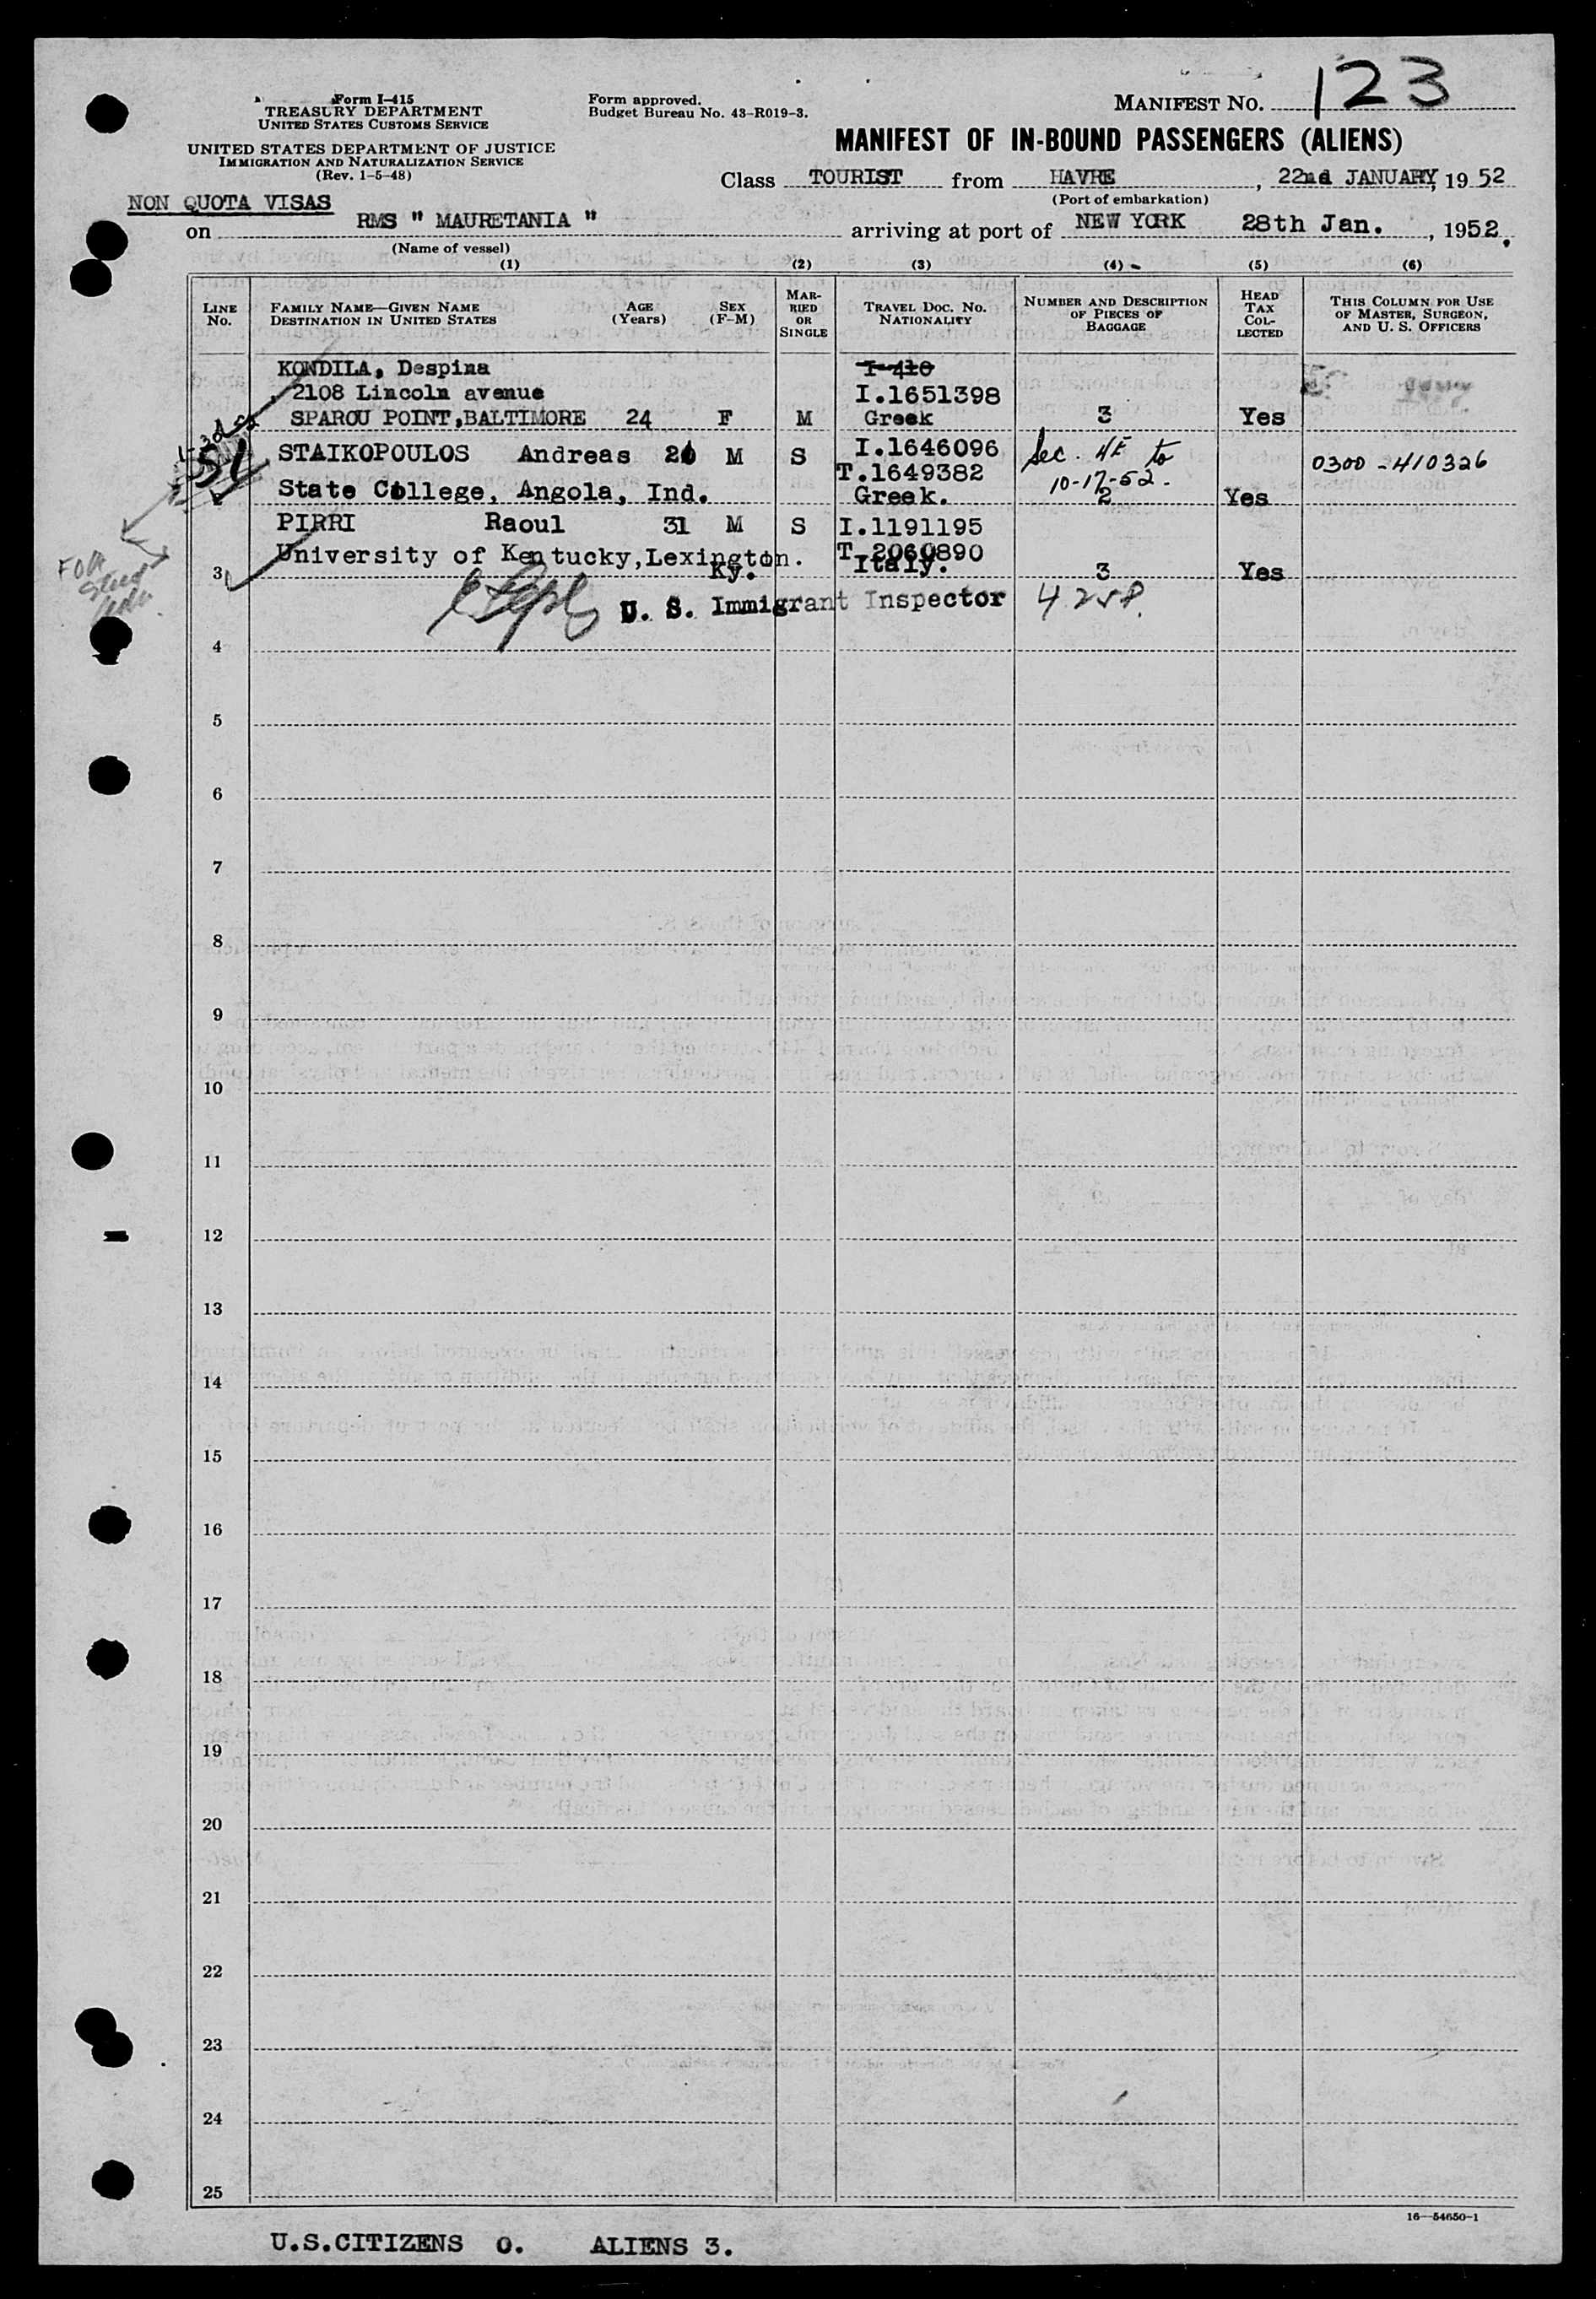 Form I-415
TREASURY DEPARTMENT
UNITED STATES CUSTOMS SERVICE
UNITED STATES DEPARTMENT OF JUSTICE
IMMIGRATION AND NATURALIZATION SERVICE
(Rev. 1-5-48)
Form approved.
Budget Bureau No. 43-R019-3.
MANIFEST NO. 123
MANIFEST OF IN-BOUND PASSENGERS (ALIENS)
Class TOURIST from HAVRE, 22nd JANUARY, 1952
(Port of embarkation)
NON QUOTA VISAS
on RMS " MAURETANIA " arriving at port of NEW YORK 28th Jan., 1952.
(Name of vessel)
(1) (2) (3) (4) (5) (6)
LINE NO.
FAMILY NAME—GIVEN NAME
DESTINATION IN UNITED STATES
AGE (Years)
SEX (F-M)
MARRIED OR SINGLE
TRAVEL DOC. NO.
NATIONALITY
NUMBER AND DESCRIPTION OF PIECES OF BAGGAGE
HEAD TAX COLLECTED
THIS COLUMN FOR USE OF MASTER, SURGEON, AND U. S. OFFICERS
KONDILA, Despina I-410
2108 Lincoln avenue I.1651398
SPAROU POINT,BALTIMORE 24 F M Greek 3 Yes
STAIKOPOULOS Andreas M S I.1646096 Sec. 4E to 0300-410326
T.1649382 10-17-52.
State College, Angola, Ind. Greek. 2 Yes
PIRRI Raoul 31 M S I.1191195
University of Kentucky,Lexington. T.2060890
3 Ky. Italy. 3 Yes
U. S. Immigrant Inspector
4
5
6
7
8
9
10
11
12
13
14
15
16
17
18
19
20
21
22
23
24
25
16—54650-1
U.S.CITIZENS 0. ALIENS 3.